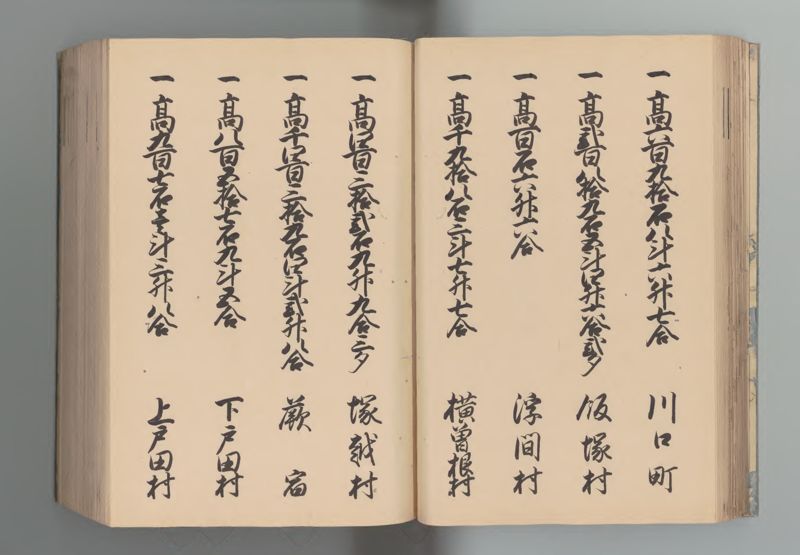 一 高六百九拾石八斗六升七合 川口町
一 高弐百八拾九石五斗四升六合弐夕 飯塚村
一 高百石六升六合 浮間村
一 高千九拾八石三斗七升七合 横曽根村
一 高四百三拾弐石九升九合三夕 塚越村
一 高千四百三拾九石四斗弐升八合 蕨宿
一 高八百五拾七石九斗五合 下戸田村
一 高九百七石壱斗三升八合 上戸田村